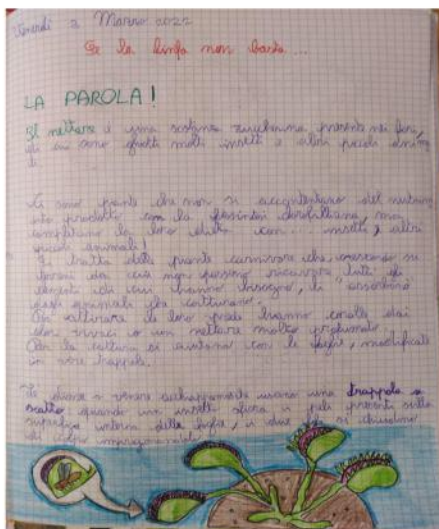 Marzo 2022
Se la linfa non basta...
LA PAROLA!
Il nettare è una sostanza zuccherina presente nei fiori,
di cui sono ghiotti molti insetti e altri piccoli anima
li.
Ci sono piante che non si accontentano del nutrim
ento prodotto con la fotosintesi clorofilliana, ma
completano la loro dieta con... insetti, altri
piccoli animali!
Si tratta delle piante carnivore che vivendo su
terreni da cui non possono ricavare tutti gli
elementi di cui hanno bisogno, li "assorbono"
dagli animali che catturano.
Per attirare le loro prede hanno corolle dai
colori vivaci o un nettare molto profumato.
Per la cattura si aiutano con le foglie, modificate
in vere trappole.
La dionea o venere acchiappamosche usano una trappola a
scatto quando un insetto sfiora i peli presenti sulla
superficie interna della foglia, i due si chiudono
di colpo imprigionandolo.